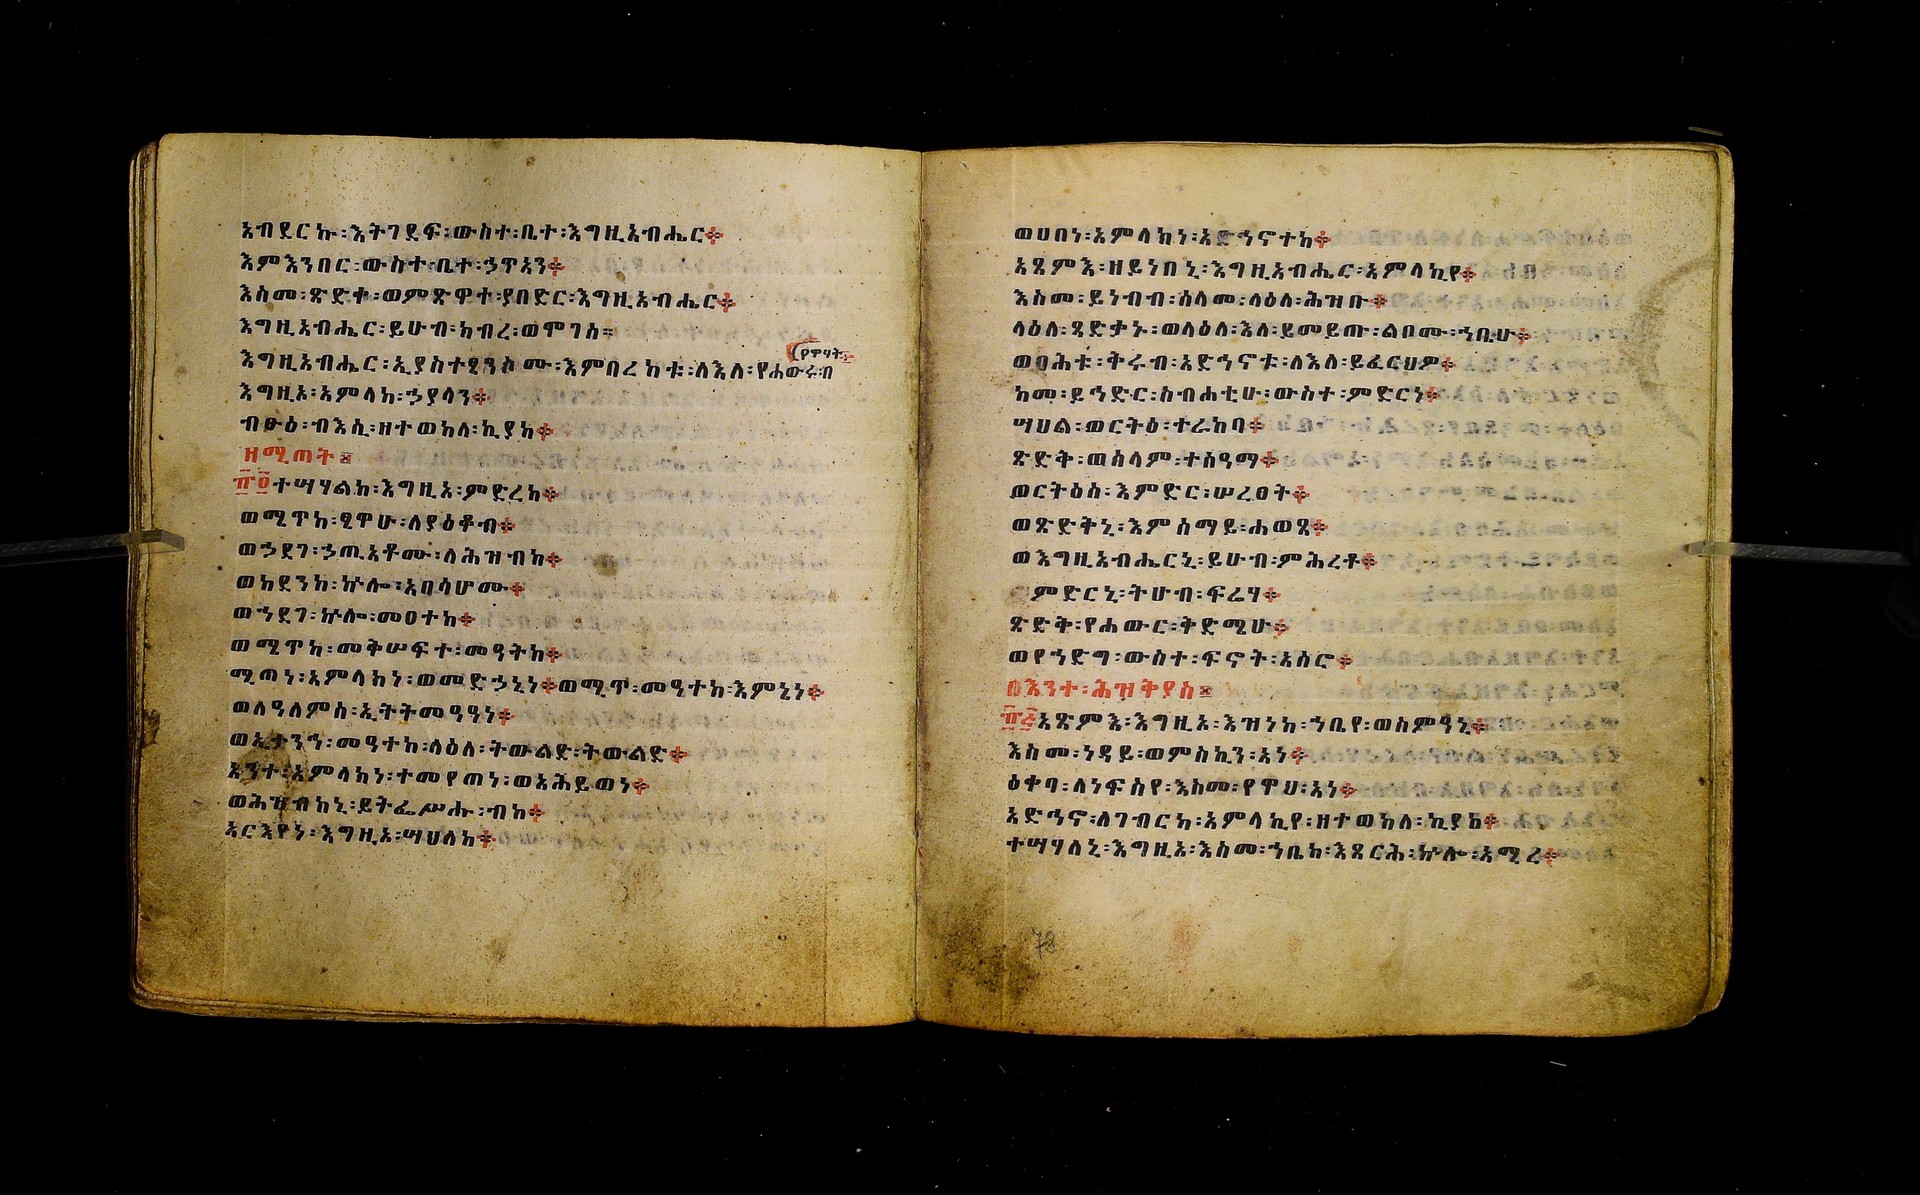 አብደርኩ፡እትገደፍ፡ውስተ፡ቤተ፡እግዚአብሔር፨
እምእንበር፡ውስተ፡ቤተ፡ኃጥአን፨
እስመ፡ጽድቀ፡ወምጽዋተ፡ያበድር፡እግዚአብሔር፨
እግዚአብሔር፡ይሁብ፡ክብረ፡ወሞገሰ።
የዋሃት፨
እግዚአብሔር፡ኢያስተፂንሶሙ፡እምበረከቱ፡ለእለ፡የሐውሩ፡በ
እግዚአ፡አምላከ፡ኃያላን፨
ብፁዕ፡ብእሲ፡ዘተወከለ፡ኪያከ፨
ዘሚጠት።
፹፬ተሣሃልከ፡እግዚአ፡ምድረከ፨
ወሚጥከ፡ፂዋሁ፡ለያዕቆብ፨
ወኃደገ፡ኃጢአቶሙ፡ለሕዝብከ፨
ወከደንከ፡ኵሎ፡አበሳሆሙ፨
ወኀደገ፡ኵሎ፡መዐተከ፨
ወሚጥከ፡መቅሠፍተ፡መዓትከ፨
ሚጠነ፡አምላክነ፡ወመድኃኒነ፨ወሚጥ፡መዓተከ፡እምኒነ፨
ወለዓለምሰ፡ኢትትመዓዓነ፨
ወኢታንኅ፡መዓተከ፡ላዕለ፡ትውልድ፡ትውልድ፨
አንተ፡አምላክነ፡ተመየጠነ፡ወአሕይወነ፨
ወሕዝብከኒ፡ይትፌሥሑ፡ብከ፨
አርእየነ፡እግዚአ፡ሣህለከ፨
ወሀበነ፡አምላክነ፡አድኅኖተከ፨
አጼምእ፡ዘይነበኒ፡እግዚአብሔር፡አምላኪየ፨
እስመ፡ይነብብ፡ሰላመ፡ላዕለ፡ሕዝቡ፨
ላዕለ፡ጻድቃኑ፡ወላዕለ፡እለ፡ይመይጡ፡ልቦሙ፡ኀቤሁ፨
ወባሕቱ፡ቅሩብ፡አድኅኖቱ፡ለእለ፡ይፈርህዎ፨
ከመ፡ይኅድር፡ስብሐቲሁ፡ውስተ፡ምድርነ፨
ሣህል፡ወርትዕ፡ተራከባ፨
ጽድቅ፡ወሰላም፡ተሰዓማ፨
ወርትዕሰ፡እምድር፡ሠረፀት፨
ወጽድቅኒ፡እምሰማይ፡ሐወጸ፨
ወእግዚአብሔርኒ፡ይሁብ፡ምሕረቶ፨
ምድርኒ፡ትሁብ፡ፍሬሃ፨
ጽድቅ፡የሐውር፡ቅድሜሁ፨
ወየኀድግ፡ውስተ፡ፍኖት፡አሰሮ፨
በእንተ፡ሕዝቅያስ።
፹፭አጽምእ፡እግዚአ፡እዝነከ፡ኀቤየ፡ወስምዓኒ፨
እስመ፡ነዳይ፡ወምስኪን፡አነ፨
ዕቀባ፡ለነፍስየ፡እስመ፡የዋህ፡አነ፨
አድኅኖ፡ለገብርከ፡አምላኪየ፡ዘተወከለ፡ኪያከ፨
ተሣሃለኒ፡እግዚአ፡እስመ፡ኀቤከ፡እጸርሕ፡ኵሎ፡አሚረ፨
78